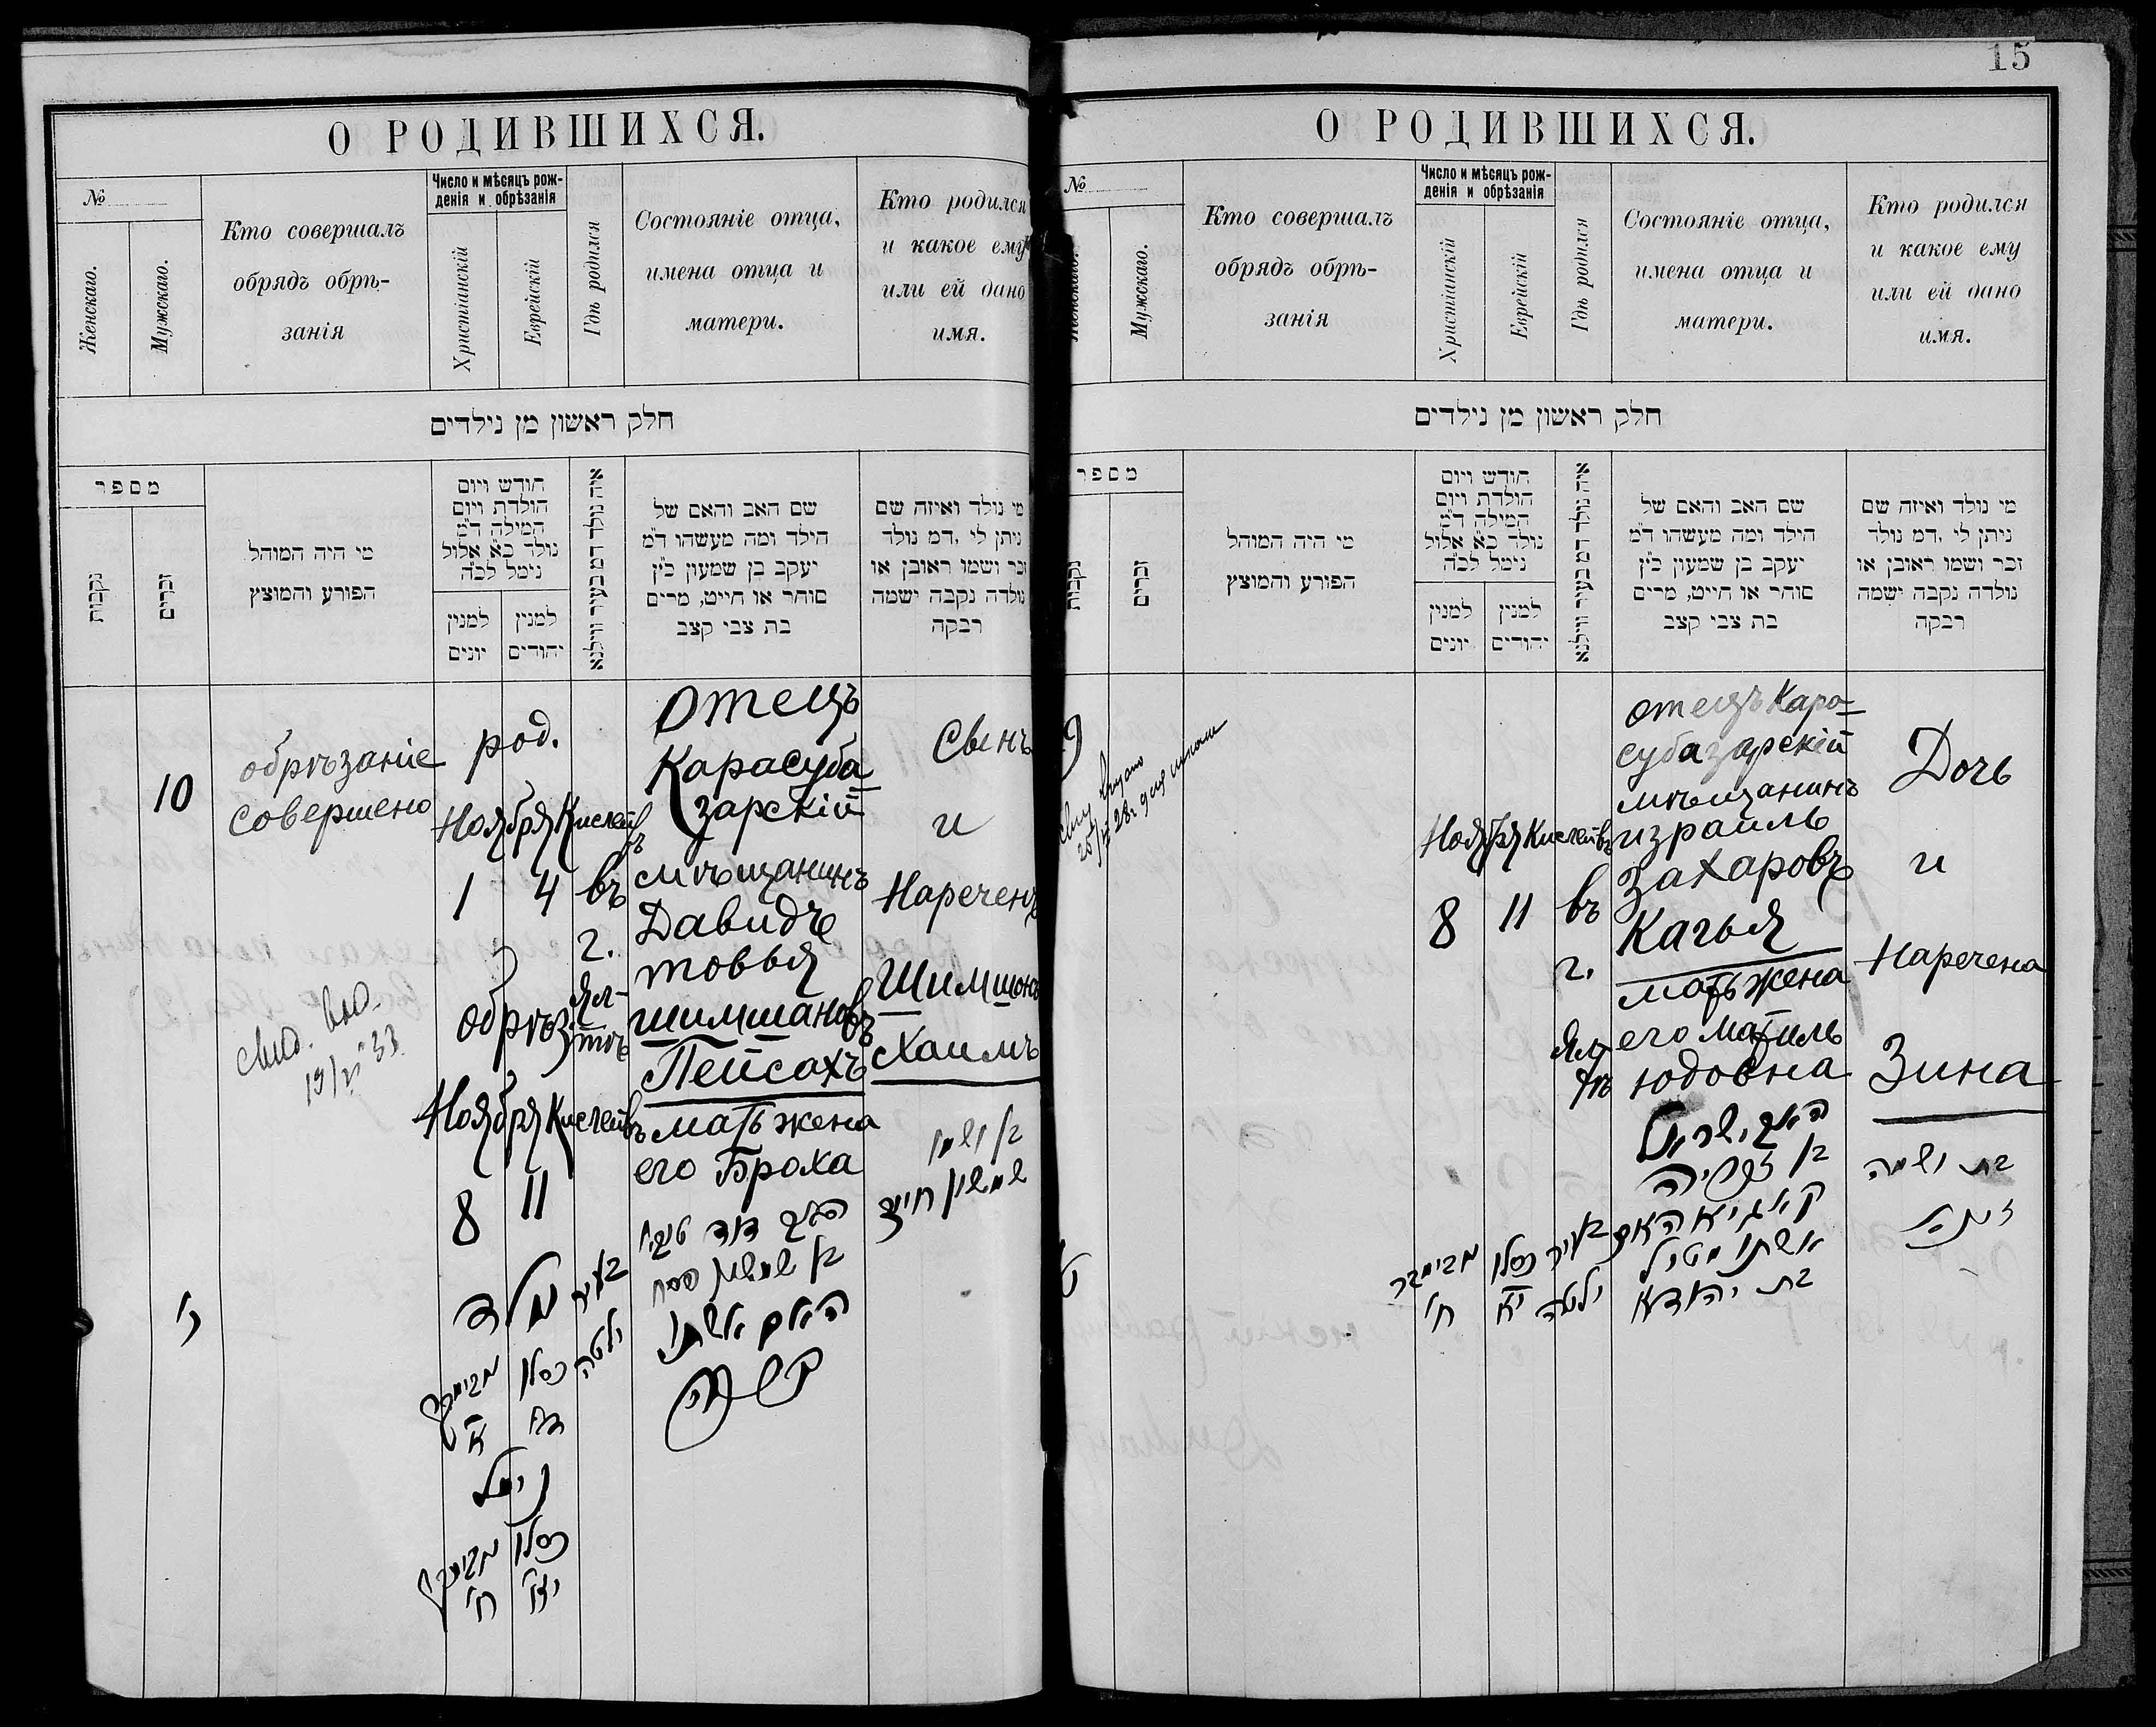 15
О РОДИВШИХСЯ.
№
Женскаго.
Мужскаго.
Кто совершалъ
обрядъ обрѣ-
занія
Число и мѣсяцъ рож-
денія и обрѣзанія
Христіанскій
Еврейскій
Гдѣ родился
Состояніе отца,
имена отца и
матери.
Кто родился
и какое ему
или ей дано
имя.
חלק ראשון מן נילדים
מספר
נקבות
זכרים
מי היה המוהל
הפורע והמוצץ
חודש ויום
הולדת ויום
המילה ד״מ
נולד כ״א אלול
נימל לכ״ה
למנין
יונים
למנין
יהודים
איה נולד דמ בעיר ווילנא
שם האב והאם של
הילד ומה מעשהו ד״מ
יעקב בן שמעון כ״ץ
סוהר או חייט, מרים
בת צבי קצב
מי נולד ואיזה שם
ניתן לי ,דמ נולד
זכר ושמו ראובן או
נולדה נקבה ישמה
רבקה
10
обрѣзаніе
совершено
род.
Ноября Кислевъ
1 4
обрѣз.
Ноября Кислевъ
8 11
въ
г.
Ял-
тѣ
отецъ
Карасуба
зарскій
мѣщанинъ
Давидъ
товья
шимшановъ
Пейсахъ
мать жена
его Броха
Свинъ
и
Нареченъ
Шимшонъ
Хаимъ
י
נולד
כסלו
נימל
כסלו
בעיר
ילטה
האב דוד טוביה
בן שמשון פסח
האם אשתו
ברכה
בן ושמו
שמשון חיים
О РОДИВШИХСЯ.
№
Женскаго.
Мужскаго.
Кто совершалъ
обрядъ обрѣ-
занія
Число и мѣсяцъ рож-
денія и обрѣзанія
Христіанскій
Еврейскій
Гдѣ родился
Состояніе отца,
имена отца и
матери.
Кто родился
и какое ему
или ей дано
имя.
חלק ראשון מן נילדים
מספר
נקבות
זכרים
מי היה המוהל
הפורע והמוצץ
חודש ויום
הולדת ויום
המילה ד״מ
נולד כ״א אלול
נימל לכ״ה
למנין
יונים
למנין
יהודים
איה נולד דמ בעיר ווילנא
שם האב והאם של
הילד ומה מעשהו ד״מ
יעקב בן שמעון כ״ץ
סוהר או חייט, מרים
בת צבי קצב
מי נולד ואיזה שם
ניתן לי ,דמ נולד
זכר ושמו ראובן או
נולדה נקבה ישמה
רבקה
9
Ноября Кислевъ
8 11
въ
г.
Ял
тѣ
отецъ Кара-
субазарскій
мѣщанинъ
израиль
Захаровъ
Кагья
мать жена
его Матиль
Юдовна
Дочь
и
Наречена
Зина
האב ישראל
בן זכריה
קאגיא האם
אשתו מטיל
בת יהודא
בעיר
ילטה
כסלו
יא
בת ושמה